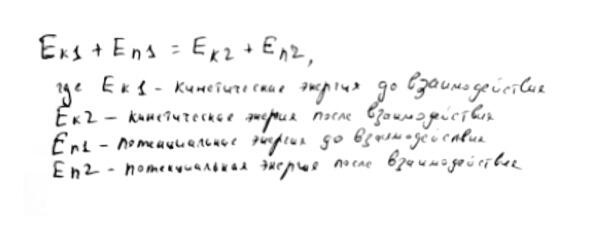 Eк1 + Eп1 = Eк2 + Eп2,
где Eк1 - кинетическая энергия до взаимодействия
Eк2 - кинетическая энергия после взаимодействия
Eп1 - потенциальная энергия до взаимодействия
Eп2 - потенциальная энергия после взаимодействия